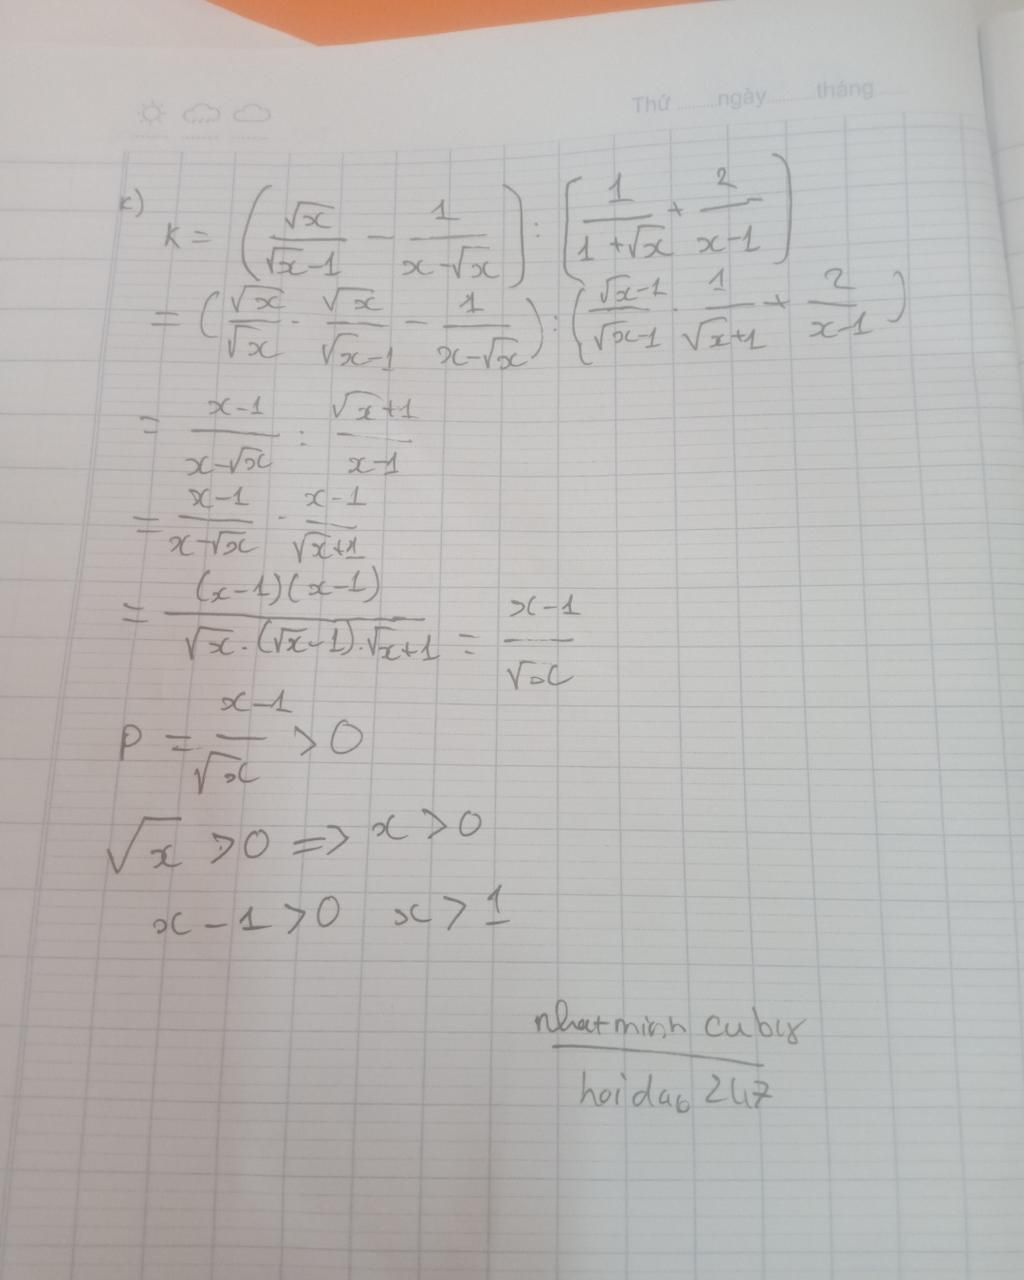 Thứ ........ ngày ........ tháng ........
k)
K = (√x/(√x-1) - 1/(x-√x)) : (1/(1+√x) + 2/(x-1))
= (√x/√x . √x/(√x-1) - 1/(x-√x)) : (√x-1/√x-1 . 1/(√x+1) + 2/(x-1))
= (x-1)/(x-√x) : (√x+1)/(x-1)
= (x-1)/(x-√x) . (x-1)/(√x+1)
= (x-1)(x-1)/(√x.(√x-1).√x+1) = (x-1)/√x
P = (x-1)/√x > 0
√x > 0 => x > 0
x-1 > 0 x > 1
nhatminh cubix
hoidap 247